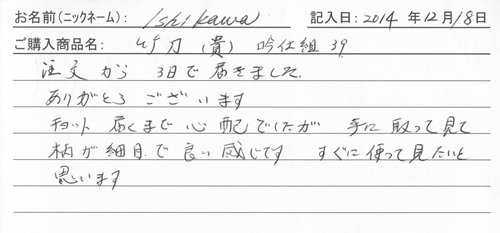 お名前(ニックネーム): Ishikawa 記入日: 2014年12月18日
ご購入商品名: 竹刀(貴) 吟仕組 39
注文から 3日で届きました.
ありがとうございます
チョット 届くまで心配でしたが 手に取って見て
柄が細目で良い感じです すぐに使って見たいと
思います